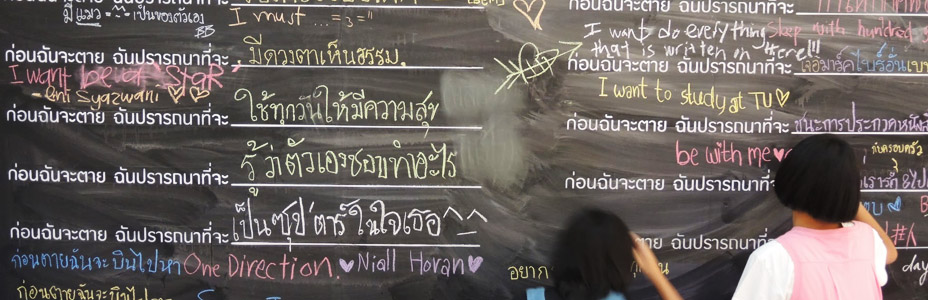 มีแมว เป็นของตัวเอง
I must ... = 3 = "
ก่อนฉันจะตาย ฉันปรารถนาที่จะ มีดวงตาเห็นธรรม.
I want be a StaR
ก่อนฉันจะตาย ฉันปรารถนาที่จะ ใช้ทุกวันให้มีความสุข
ก่อนฉันจะตาย ฉันปรารถนาที่จะ รู้ว่าตัวเองชอบทำอะไร
ก่อนฉันจะตาย ฉันปรารถนาที่จะ เป็นซุป'ตาร์ในใจเธอ ^_^
ก่อนตายฉันจะบินไปหา One Direction. ♥ Niall Horan ♥
ก่อนตายฉันจะบินไป
ก่อนฉันจะตาย ฉันปรารถนาที่จะ
I want do everything
that is written in Here!!!
Sleep with hundred
ก่อนฉันจะตาย ฉันปรารถนาที่จะ
I want to study at TU ♡
ก่อนฉันจะตาย ฉันปรารถนาที่จะ ชนะการประกวดหนัง
be with me ♥
กับครอบครัว
ก่อนฉันจะตาย ฉันปรารถนาที่จะ
ตาย ฉันปรารถนาที่จะ
อยาก
day